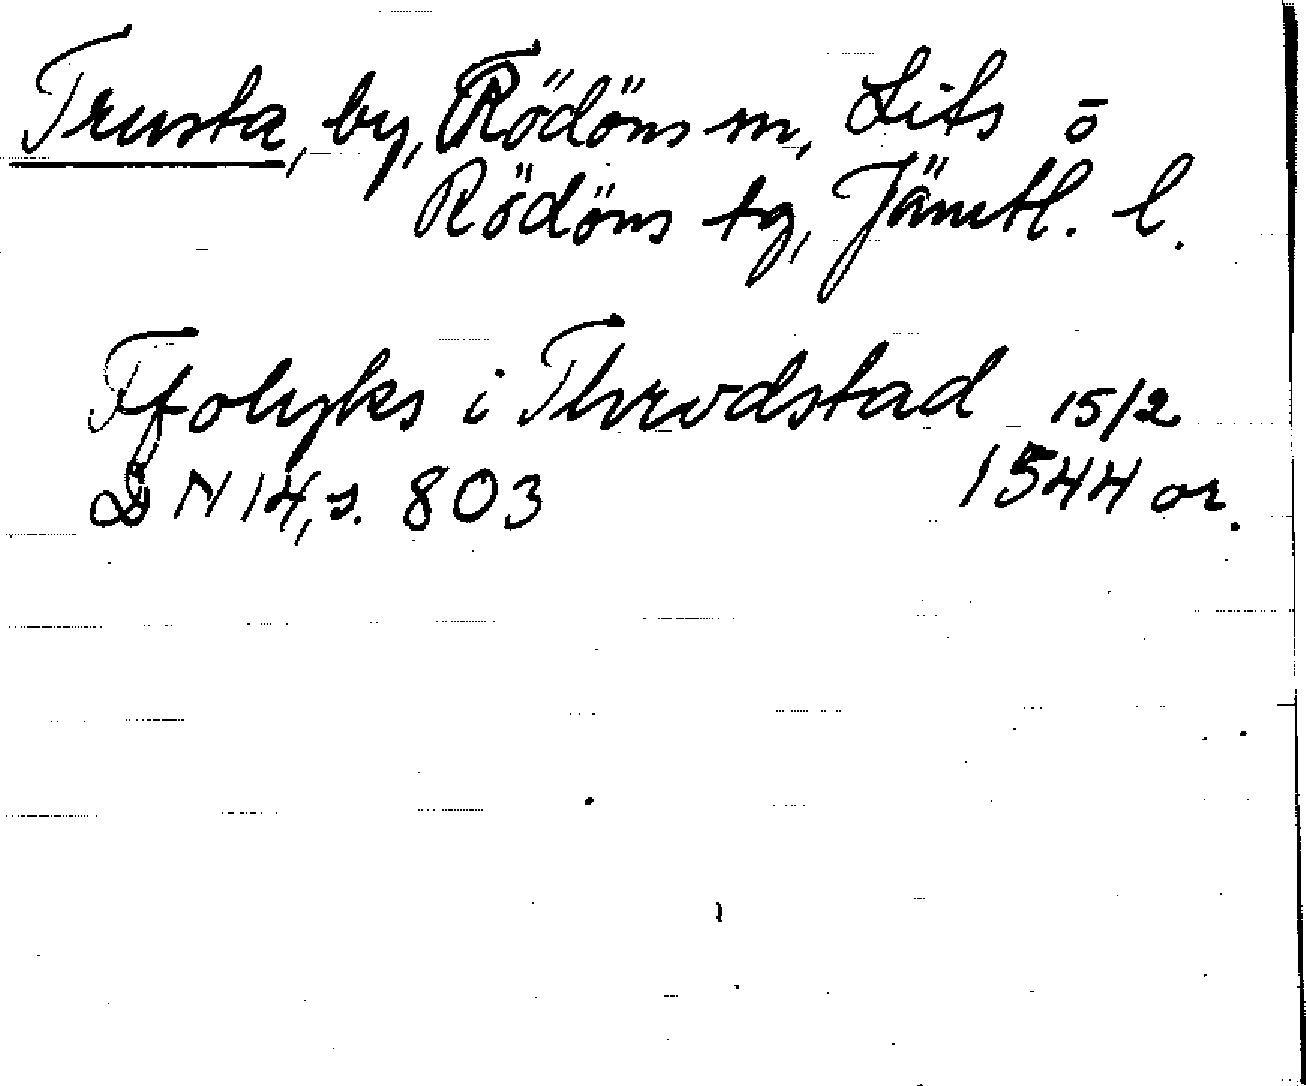 Trusta, by, Rödöns sn, Lits o
Rödöns tg, Jämtl. l.
Ffolugks i Thrvdstad 15/2
DN 14, s. 803 1544 or.